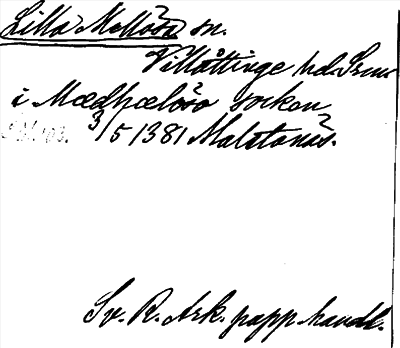 Lilla Mellösa sn.
Villåttinge hd. Srm
i Mædhælöso soken
3/5 1381 Malstanäs.
Sv. R. Ark. papp. handl.